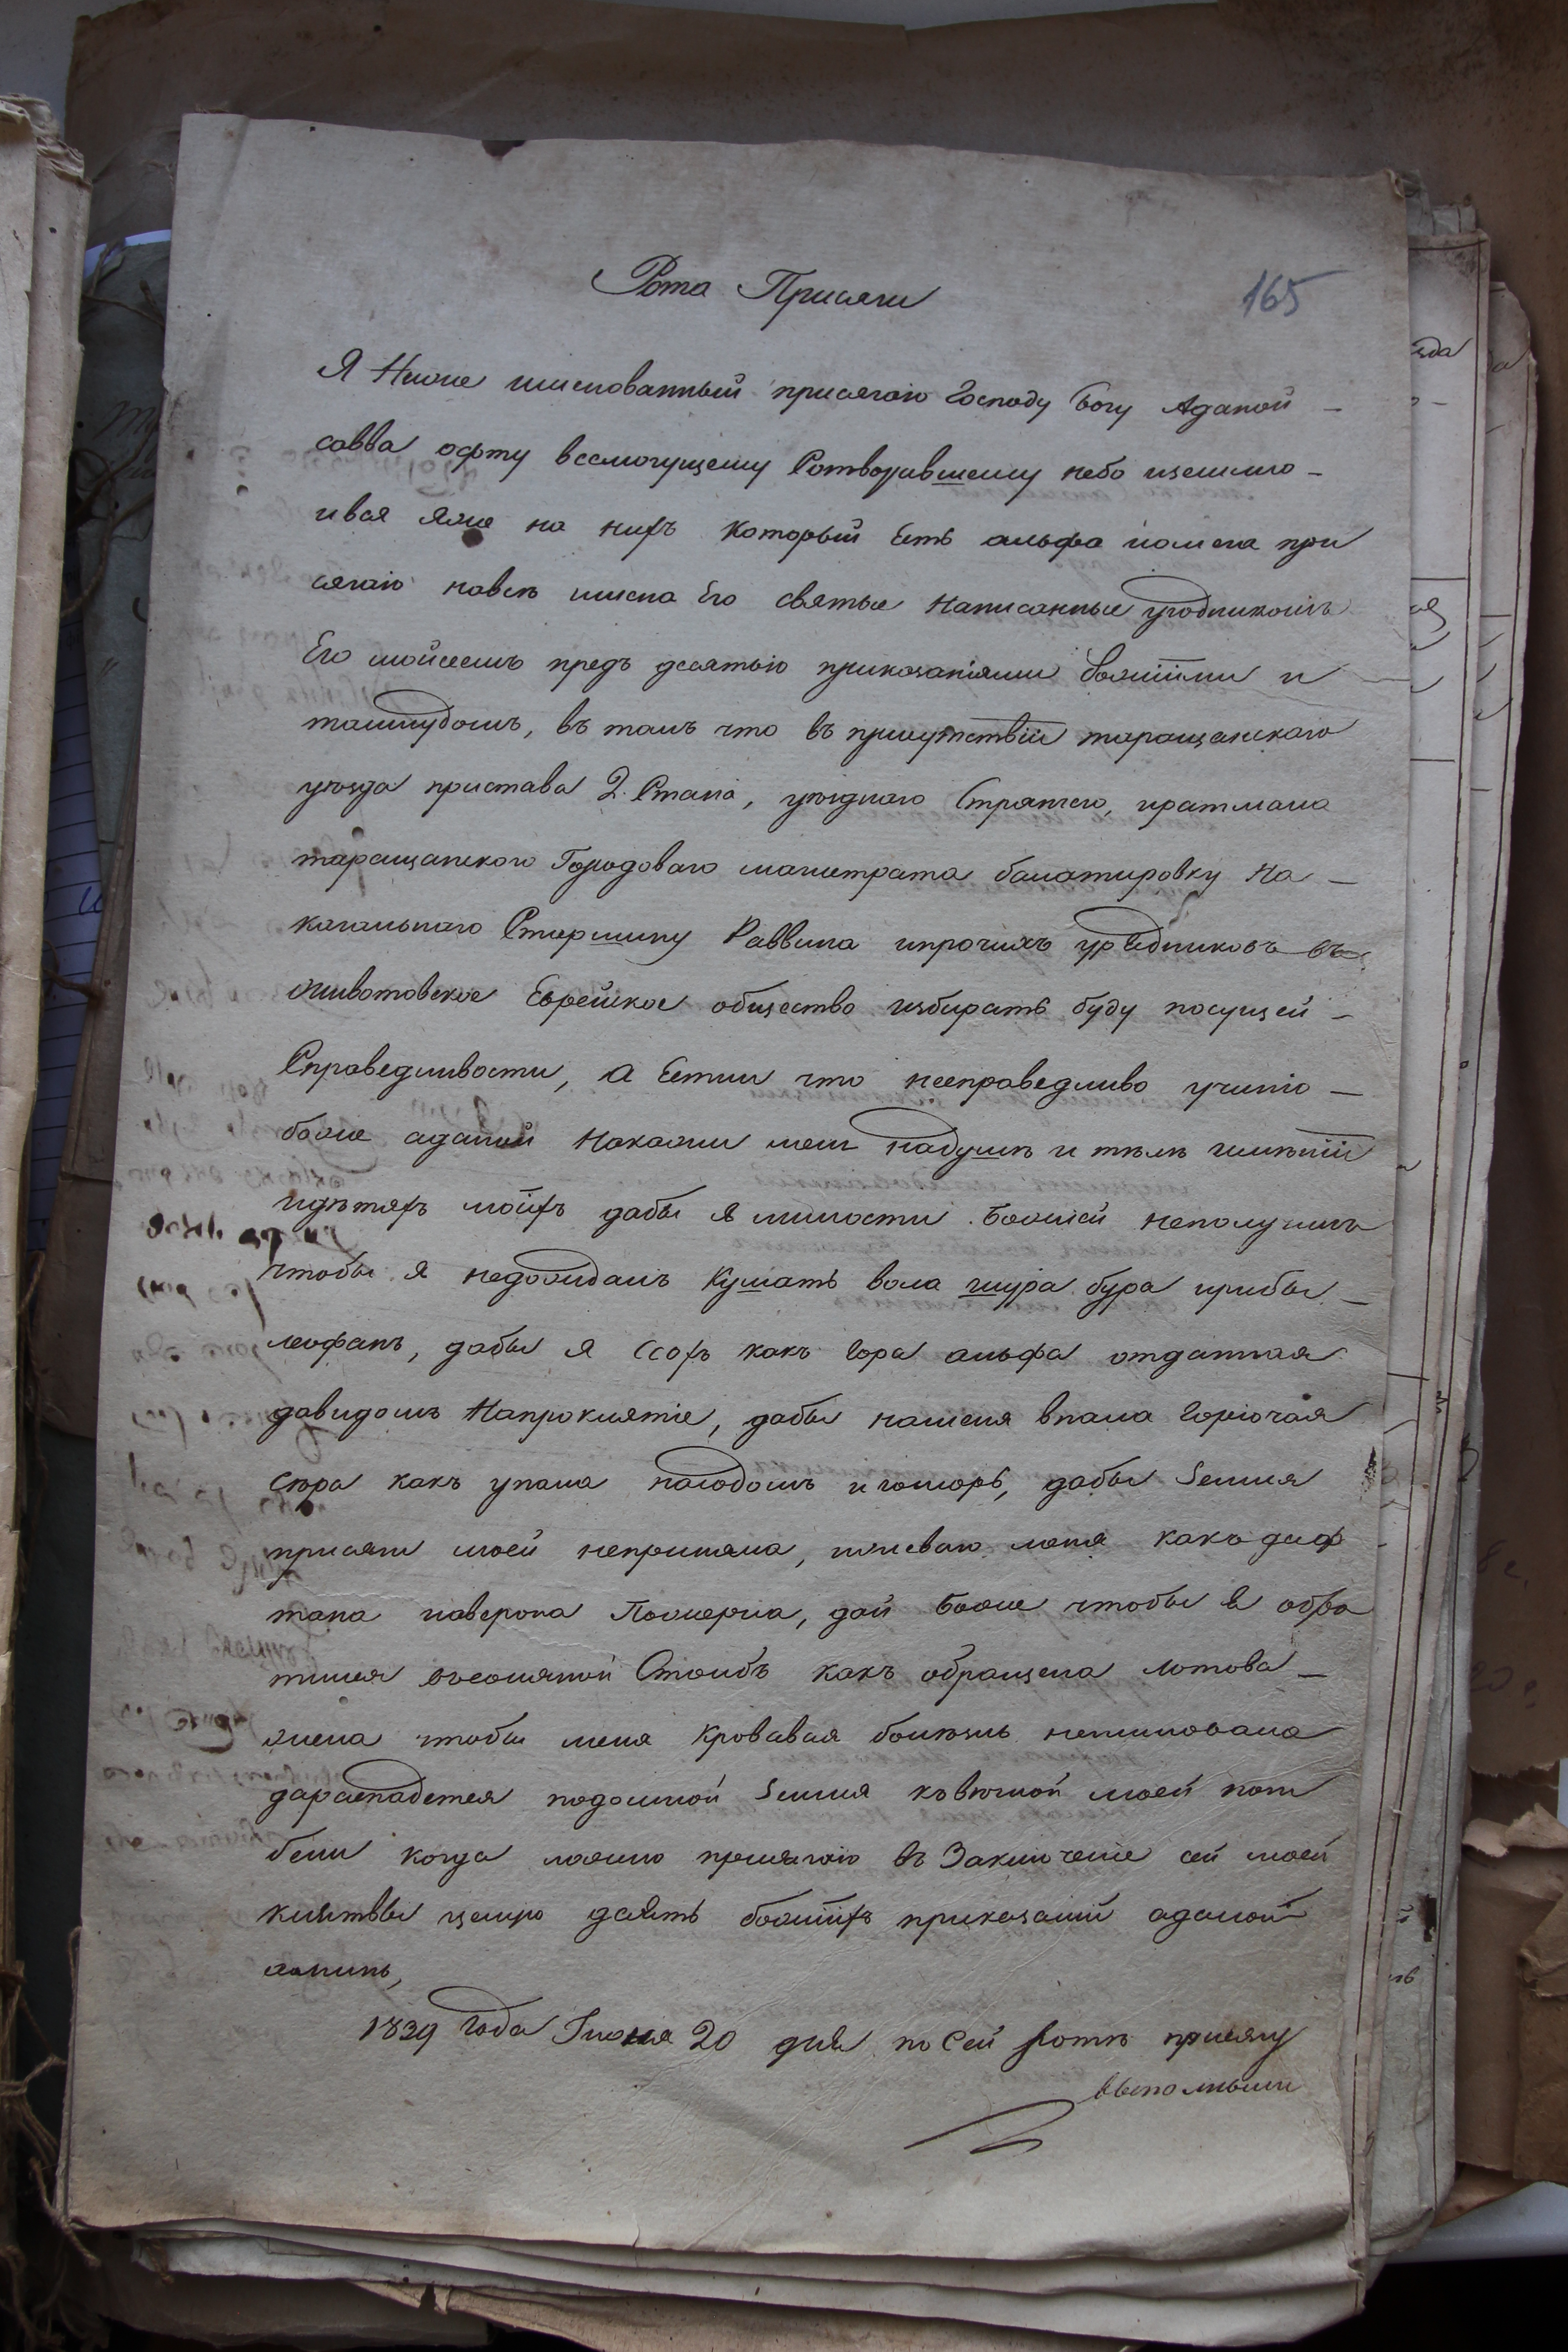 Рота Присяги
165
Я Ниже имянованный присягаю Господу Богу Аданой –
савва офту всемогущему Сотворившему небо иземлю –
ився яже на нихъ который Есть альфа иомега при
сягаю навсѣ имена Его святые написанные угодникомъ
Его мойсеемъ предъ десятью приказаніями Божіими и
талмудомъ, въ томъ что въ присутствіи таращанскаго
уѣзда пристава 2. Стана, уѣзднаго Стряпчего, иратмана
таращанского Городоваго магистрата балатировку на –
кагальнаго Старшину Раввина ипрочихъ урядниковъ въ
животовское Еврейское общество избирать буду посущей –
Справедливости, а Естли что несправедливо учиню –
боже аданой накажи меня надушѣ и тѣлѣ имѣніи
идѣтяхъ моихъ дабы я милости Божией неполучилъ
чтобы я недожидалъ кушать вола шура бура ирибы –
леофанъ, дабы я ссохъ какъ гора альфа отданная
давидомъ Напроклятіе, дабы наменя впала горючая
сѣра какъ упала насодомъ игоморъ, дабы Земля
присяги моей неприняла, иживаго меня какъ даф
тана иаверона Пожерла, дай Боже чтобы я обра
тился въсоляной Столбъ какъ обращена лотова –
жена чтобы меня кровавая болѣзнь неминовала
дараспадется подомной Земля ковѣчной моей поги
бели когда ложно присягаю въ Заключеніе сей моей
клятвы целую десять божіихъ приказаній аданой
аминь,
1839 года Іюня 20 дня по Сей Ротѣ присягу
выполнили